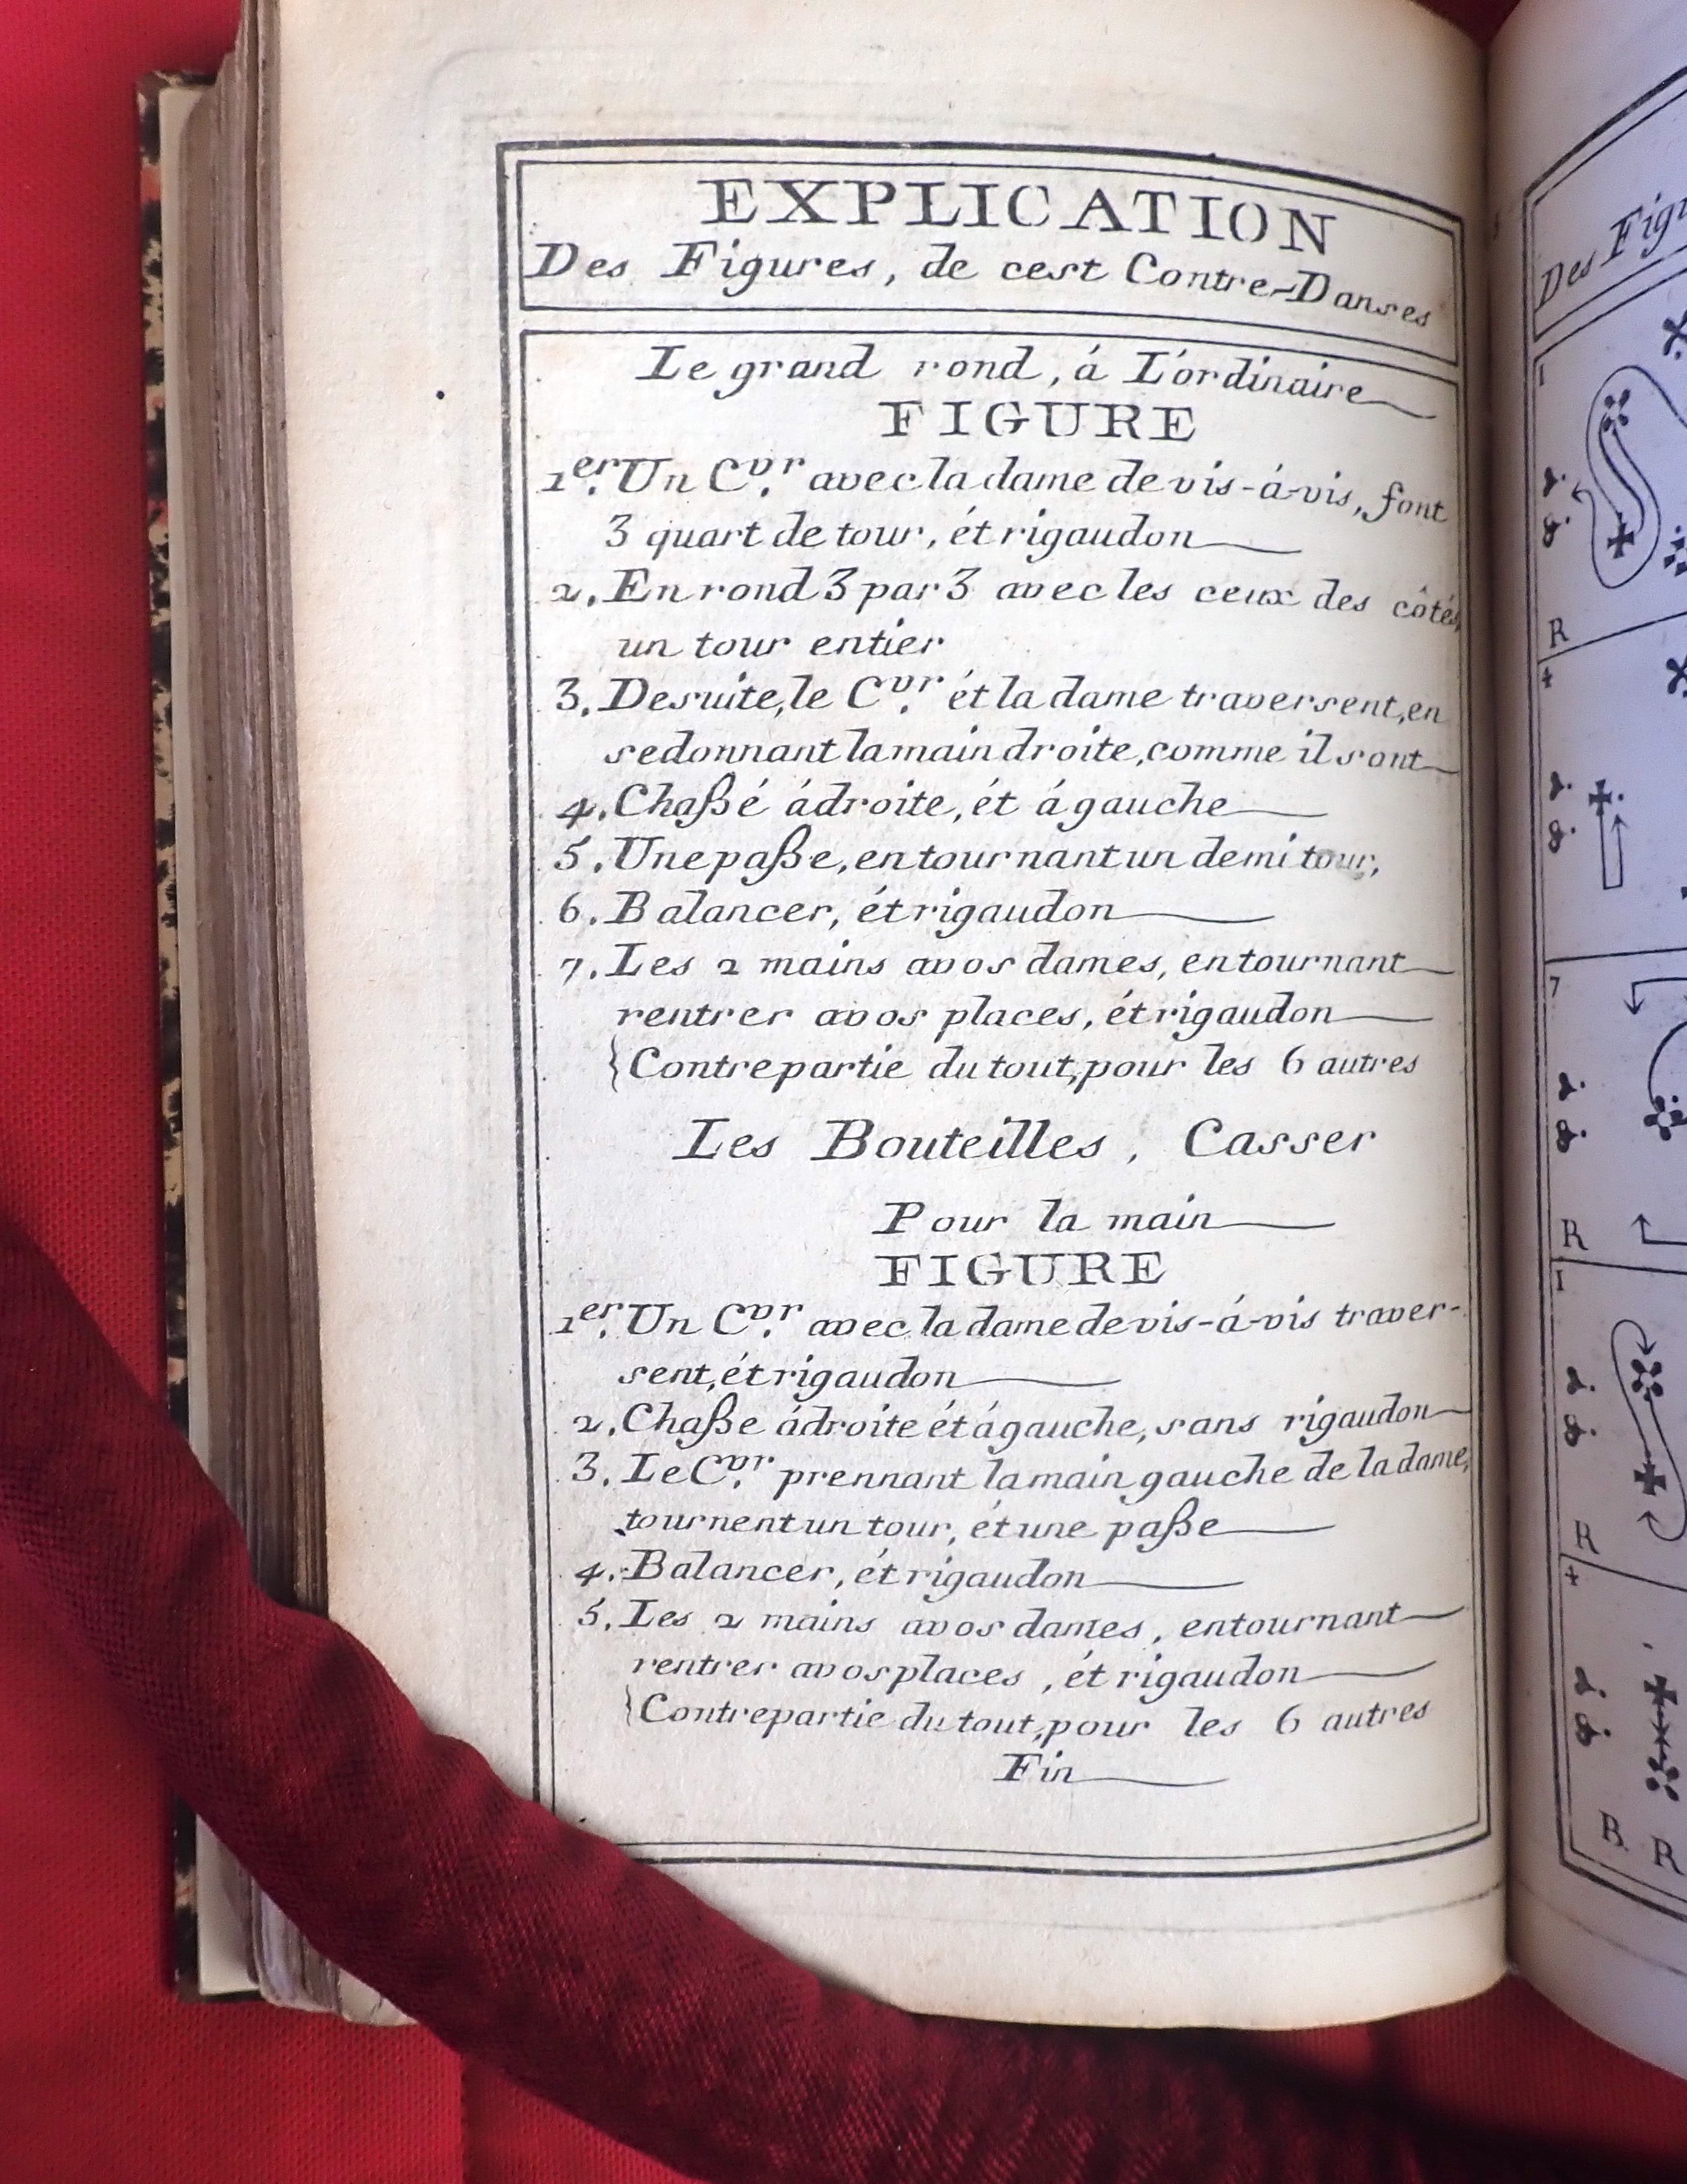 EXPLICATION
Des Figures, de cest Contre-Danses
Le grand rond, á L'ordinaire
FIGURE
1er. Un Cvr. avec la dame de vis-á-vis, font
3 quart de tour, ét rigaudon
2. En rond 3 par 3 avec les ceux des côtés,
un tour entier
3. Desuite, le Cvr. ét la dame traversent, en
se donnant la main droite, comme il sont
4. Chaßé á droite, ét á gauche
5. Une paße, en tournant un demi tour,
6. Balancer, ét rigaudon
7. Les 2 mains a vos dames, en tournant
rentrer a vos places, ét rigaudon
{Contrepartie du tout, pour les 6 autres
Les Bouteilles, Casser
Pour la main
FIGURE
1er. Un Cvr. avec la dame de vis-á-vis traver-
sent, ét rigaudon
2. Chaße á droite ét á gauche, sans rigaudon
3. Le Cvr. prennant la main gauche de la dame,
tournent un tour, ét une paße
4. Balancer, ét rigaudon
5. Les 2 mains a vos dames, en tournant
rentrer a vos places, ét rigaudon
{Contrepartie du tout, pour les 6 autres
Fin
Des Figu
1
R
4
7
R
1
R
4
R R